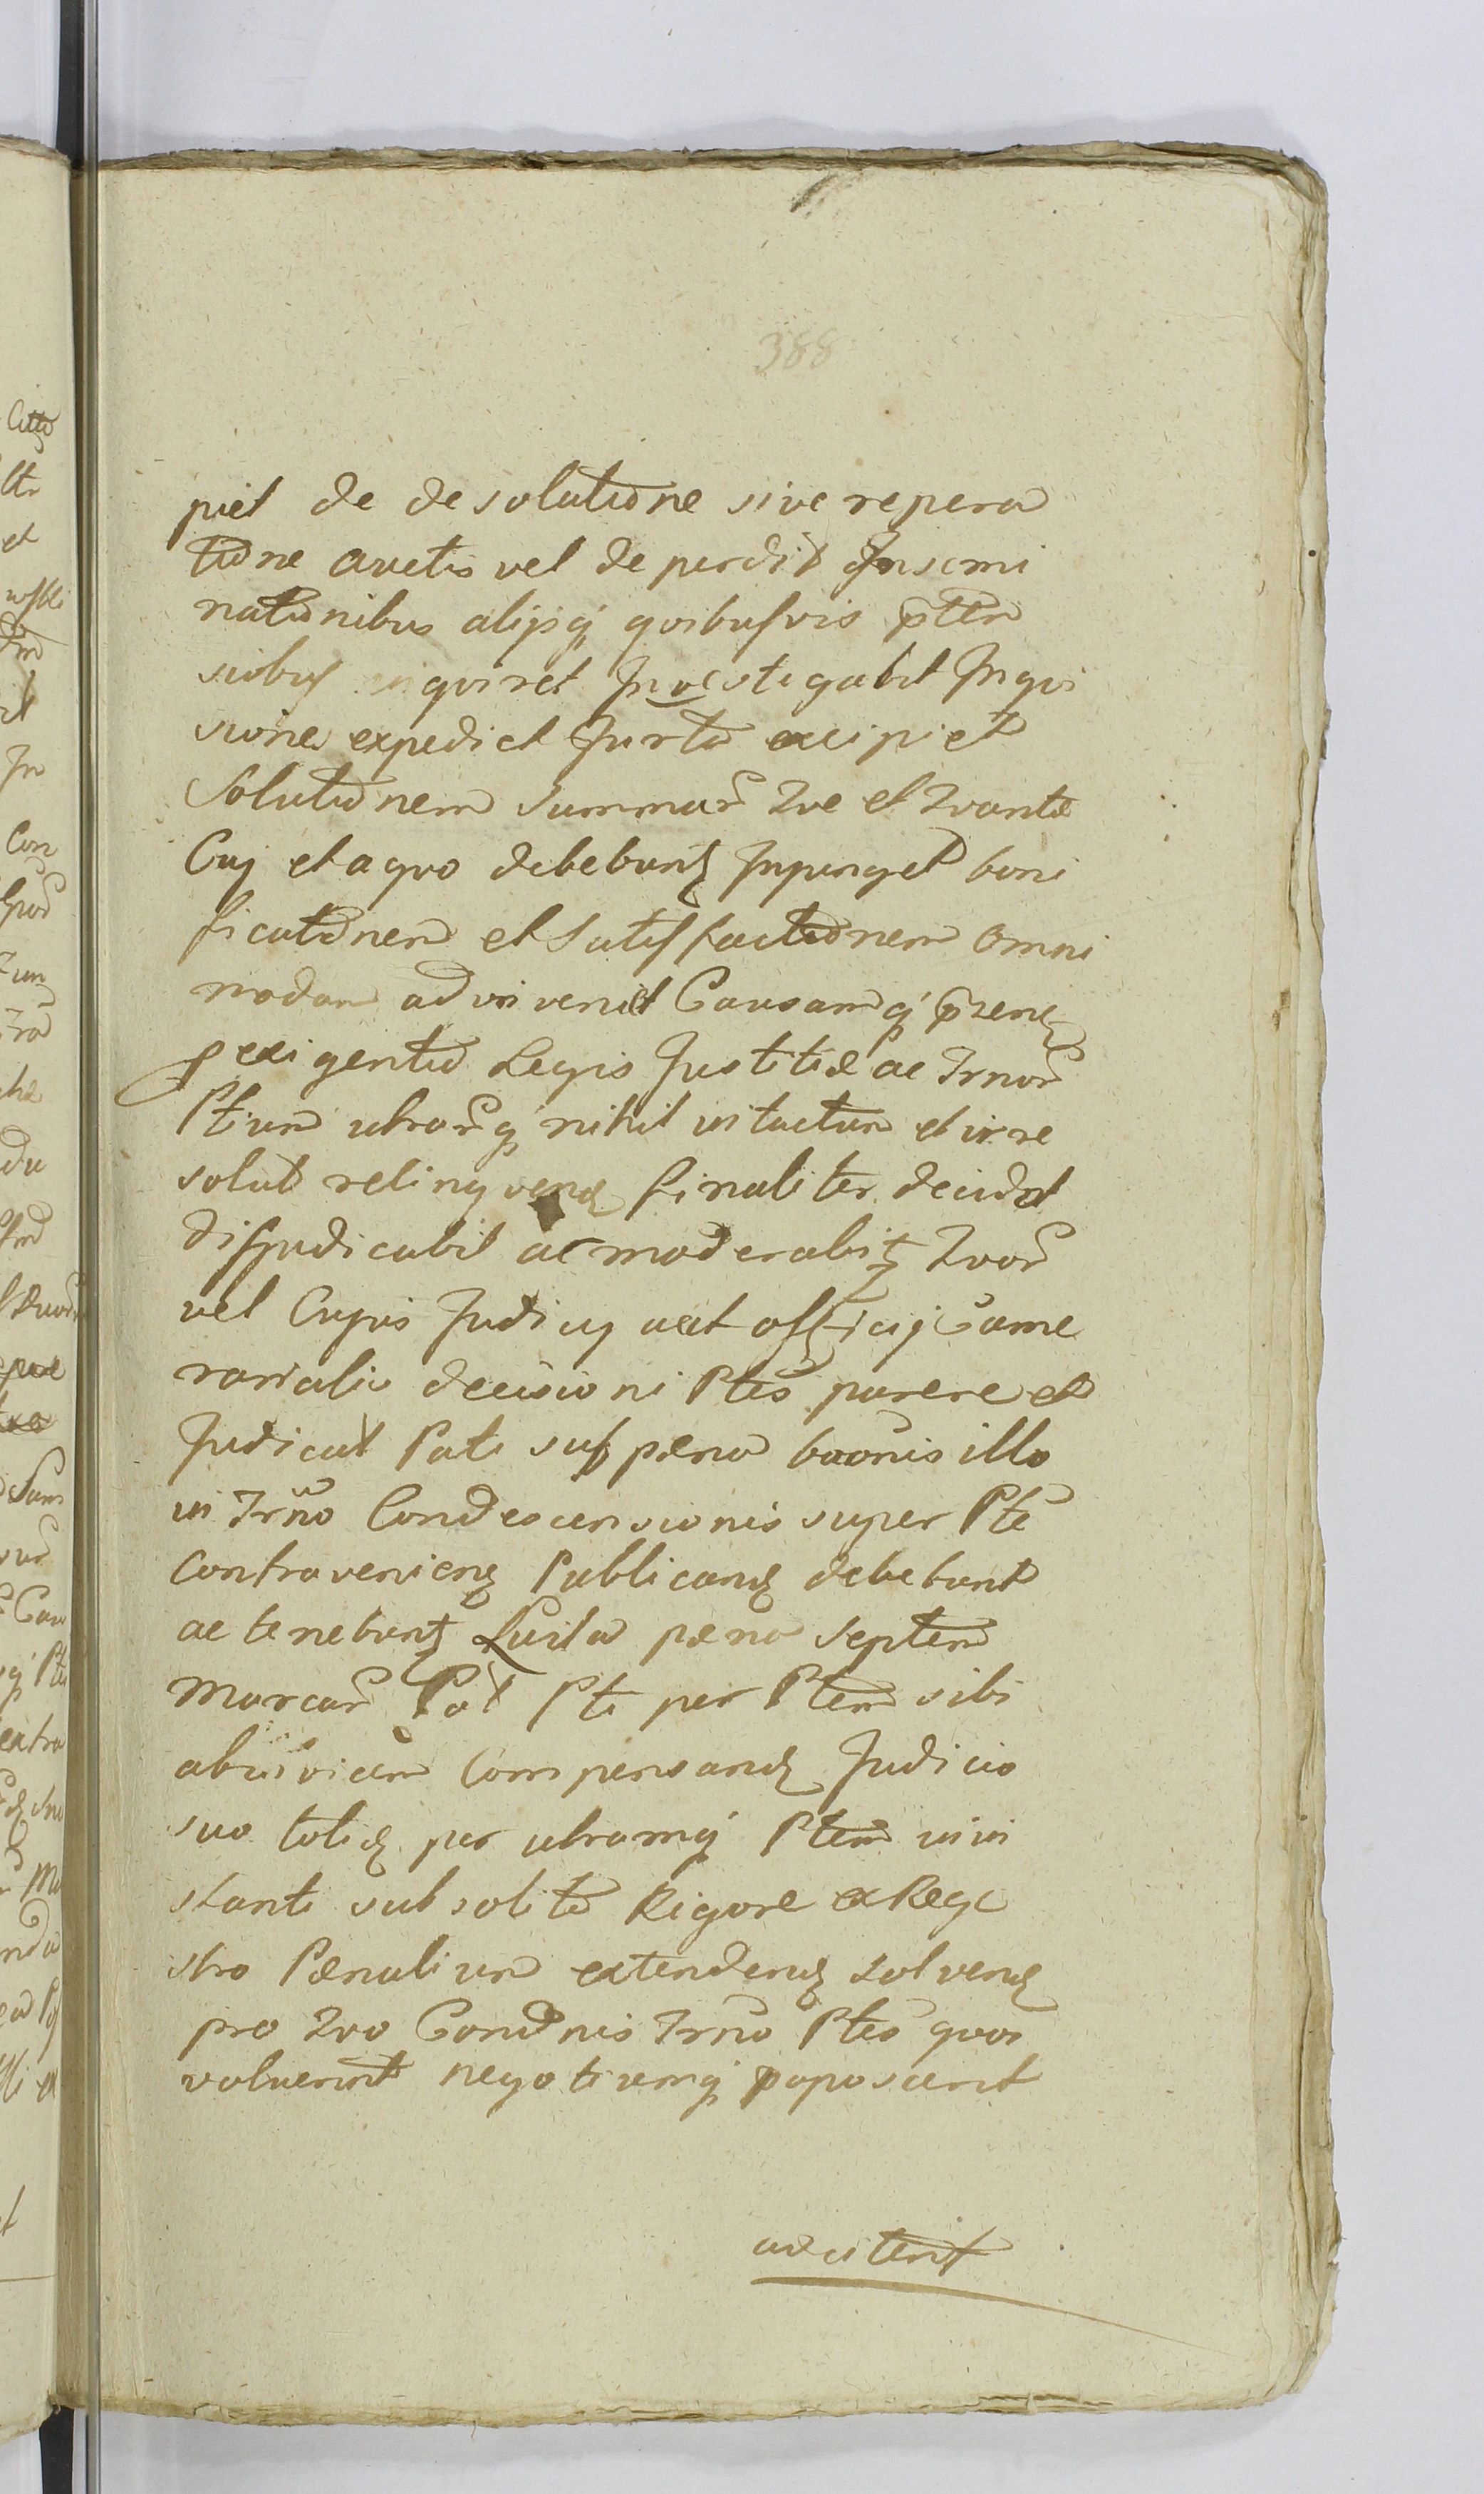 388
piet de desolatione sive repera
tione avctis vel deperdit Insemi
nationibus alijsq́ qvibusvis p̄ten
siobus inqviret Investigabit Inqvi
siones expediet Jurta excipiet
Solutionem Summar̃ qve et qvante
Cuj et a qvo debebunt Inpinget boni
ficationem et Satisfactionem omni
modam adinvenit Causamq́ p̄sen
p exigentia Legis Justitiæ ac Trnor̃
Ptium utrar̃q́ nihil intactum et irre
solut relinqvend finaliter decidat
disjudicabit ac moderabit qvor̃
vel Cujus Judicij aeat officij Came
rarialis decisioni Ptes parere et
Judicat Pati sub pæna baonis illo
in Trno Condescensionis super Pte
Contravenien Publicand debebunt
ac tenebunt Luita pæna septem
Marcar̃ Pol Pti per Ptem sibi
abinvicem Compensand Judicio
suo totid per utramq́ Ptem in in
stanti sub solito Rigore ex Regi
stro Pænalium extendend solvend
pro qvo Condnis Trno Ptes qvos
voluerint negotiumq́ poposcerit
adcitent